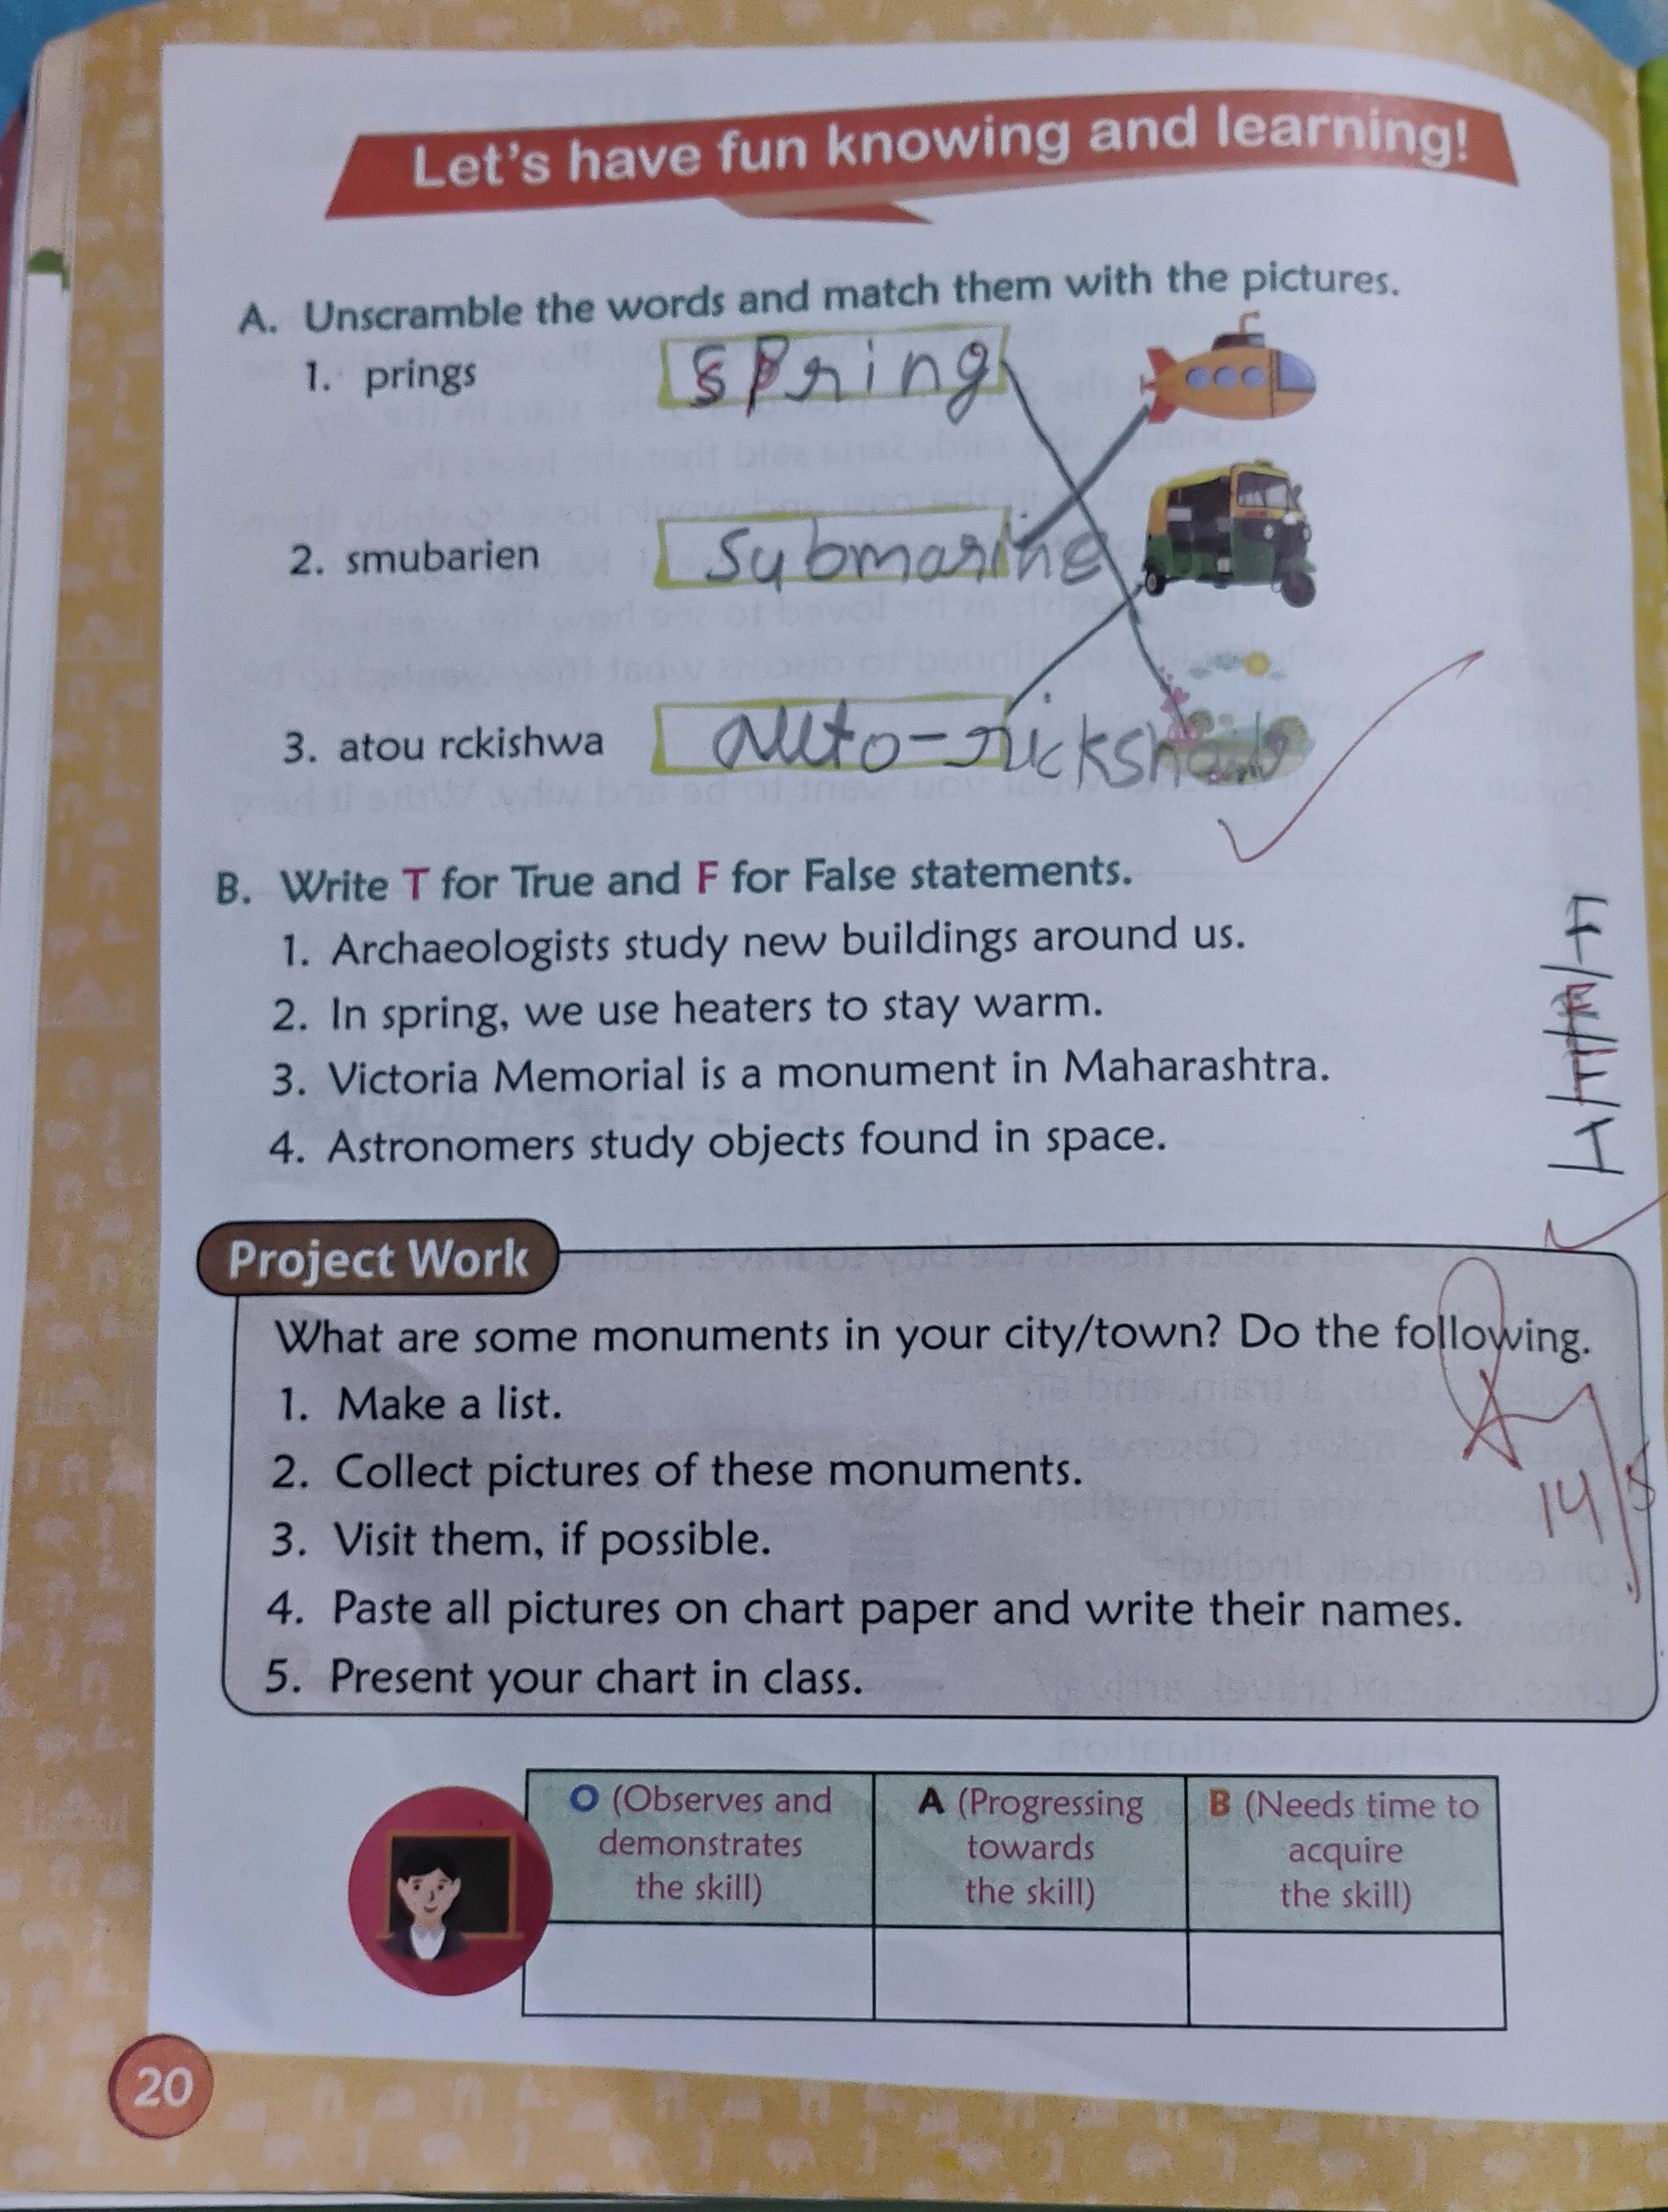 Let's have fun knowing and learning!
A. Unscramble the words and match them with the pictures.
1. prings spring
2. smubarien submarine
3. atou rckishwa auto-rickshaw
B. Write T for True and F for False statements.
1. Archaeologists study new buildings around us. F
2. In spring, we use heaters to stay warm.
3. Victoria Memorial is a monument in Maharashtra.
4. Astronomers study objects found in space. T
Project Work
What are some monuments in your city/town? Do the following.
1. Make a list.
2. Collect pictures of these monuments.
3. Visit them, if possible.
14/5
4. Paste all pictures on chart paper and write their names.
5. Present your chart in class.
O (Observes and demonstrates the skill)
A (Progressing towards the skill)
B (Needs time to acquire the skill)
20